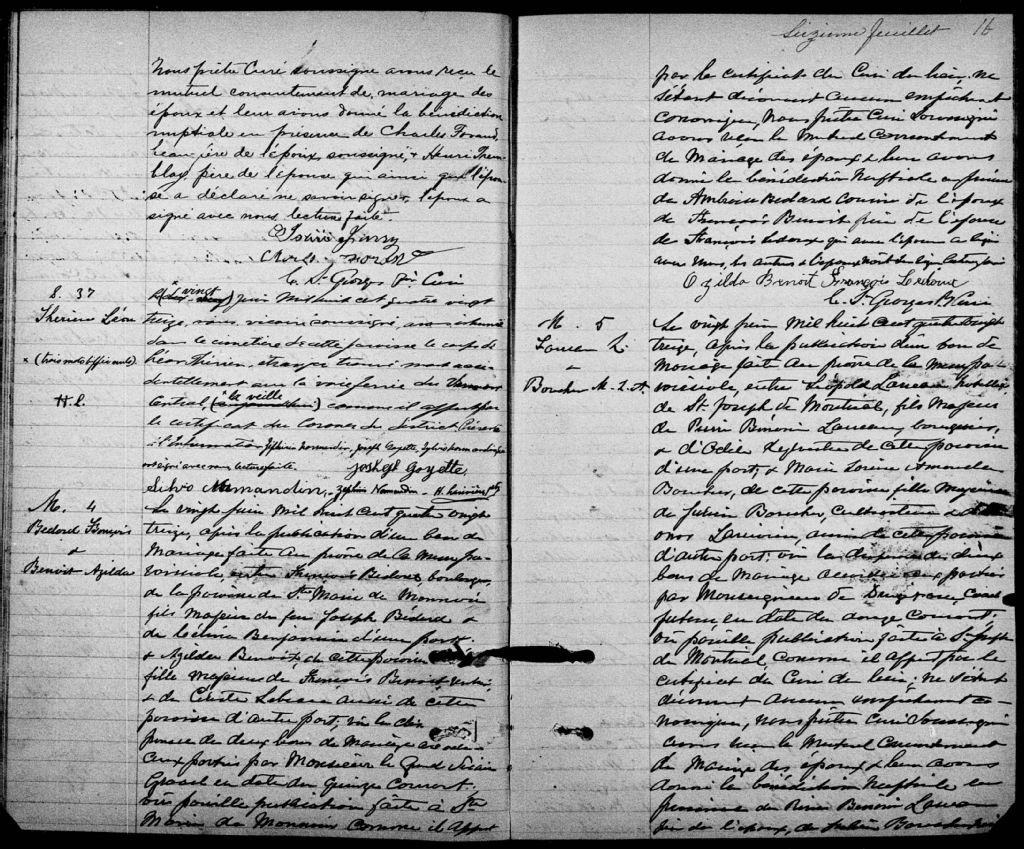 Nous prêtre Curé soussigné avons reçu le
mutuel consentement de mariage des
époux et leur avons donné la bénédiction
nuptiale en présence de Charles
père de l'époux soussigné, & Henri Trem-
blay, père de l'épouse qui ainsi que l'épou-
se a déclaré ne savoir signer, l'époux a
signé avec nous lecture faite.
C. St. Georges Ptr Curé
S. 37
Thérien Léon
x (trois mots biffés nuls)
H. L.
vingt juin mil huit cent quatre vingt
treize, nous, vicaire soussigné, avons inhumé
dans le cimetière de cette paroisse le corps de
Léon Thérien, étranger trouvé mort acci-
dentellement sur la voie ferrée du Vermont
Central, la veille comme il appert par
le certificat du Coroner du district. Présents
à l'inhumation Zéphirin Normandin, Joseph Goyette, Sylvio Normandin
ont signé avec nous lecture faite. Joseph Goyette
Silvo Normandin, Zéphir Normandin
M. 4
Bédard François
&
Benoit Azilda
Le vingt juin mil huit cent quatre vingt
treize, après la publication d'un ban de
Mariage faite au prône de la Messe Pa-
roissiale, entre François Bédard boulanger,
de la paroisse de Ste Marie de Monnoir
fils Majeur de feu Joseph Bédard &
de Benjamin d'une part;
& Azilda Benoit de cette paroisse
fille majeure de François Benoit
& de aussi de cette
paroisse d'autre part; vu la dis-
pense de deux bans de Mariage accordée
aux parties par Monsieur le Grand Vicaire
Gravel en date du quinze Courant;
vu pareille publication faite à Ste
Marie de Monnoir comme il appert
Seizième feuillet 16
par le certificat du Curé du lieu; ne
s'étant découvert aucun empêchement
canonique, Nous prêtre Curé soussigné
avons reçu le Mutuel Consentement
de Mariage des époux & leur avons
donné la bénédiction Nuptiale en présence
de Bédard Cousin de l'époux
de François Benoit père de l'épouse
de François Ledoux qui avec l'épouse a signé
avec nous, les autres & l'époux n'ont su signer lecture faite
Ozilda Benoit François Ledoux
C. St. Georges Ptr Curé
M. 5
Lanceau L.
&
Boucher M. L. A.
Le vingt juin mil huit cent quatre vingt
treize, après la publication d'un ban de
Mariage faite au prône de la Messe pa-
roissiale, entre Léopold
de St. Joseph de Montréal, fils Majeur
de Pierre Bénoni bourgeois,
& d'Odile de cette paroisse
d'une part; & Marie Louise Amanda
Boucher, de cette paroisse fille Majeure
de Julien Boucher, Cultivateur &
aussi de cette paroisse
d'autre part; vu la dispense de deux
bans de Mariage accordée aux parties
par Monseigneur de
en date du douze Courant;
vu pareille publication faite à St. Joseph
de Montréal, comme il appert par le
certificat du Curé du lieu; ne s'étant
découvert aucun empêchement ca-
nonique, nous prêtre Curé soussigné
avons reçu le Mutuel Consentement
de Mariage des époux & leur avons
donné la bénédiction Nuptiale en
présence de Pierre Bénoni
père de l'époux, de Julien Boucher